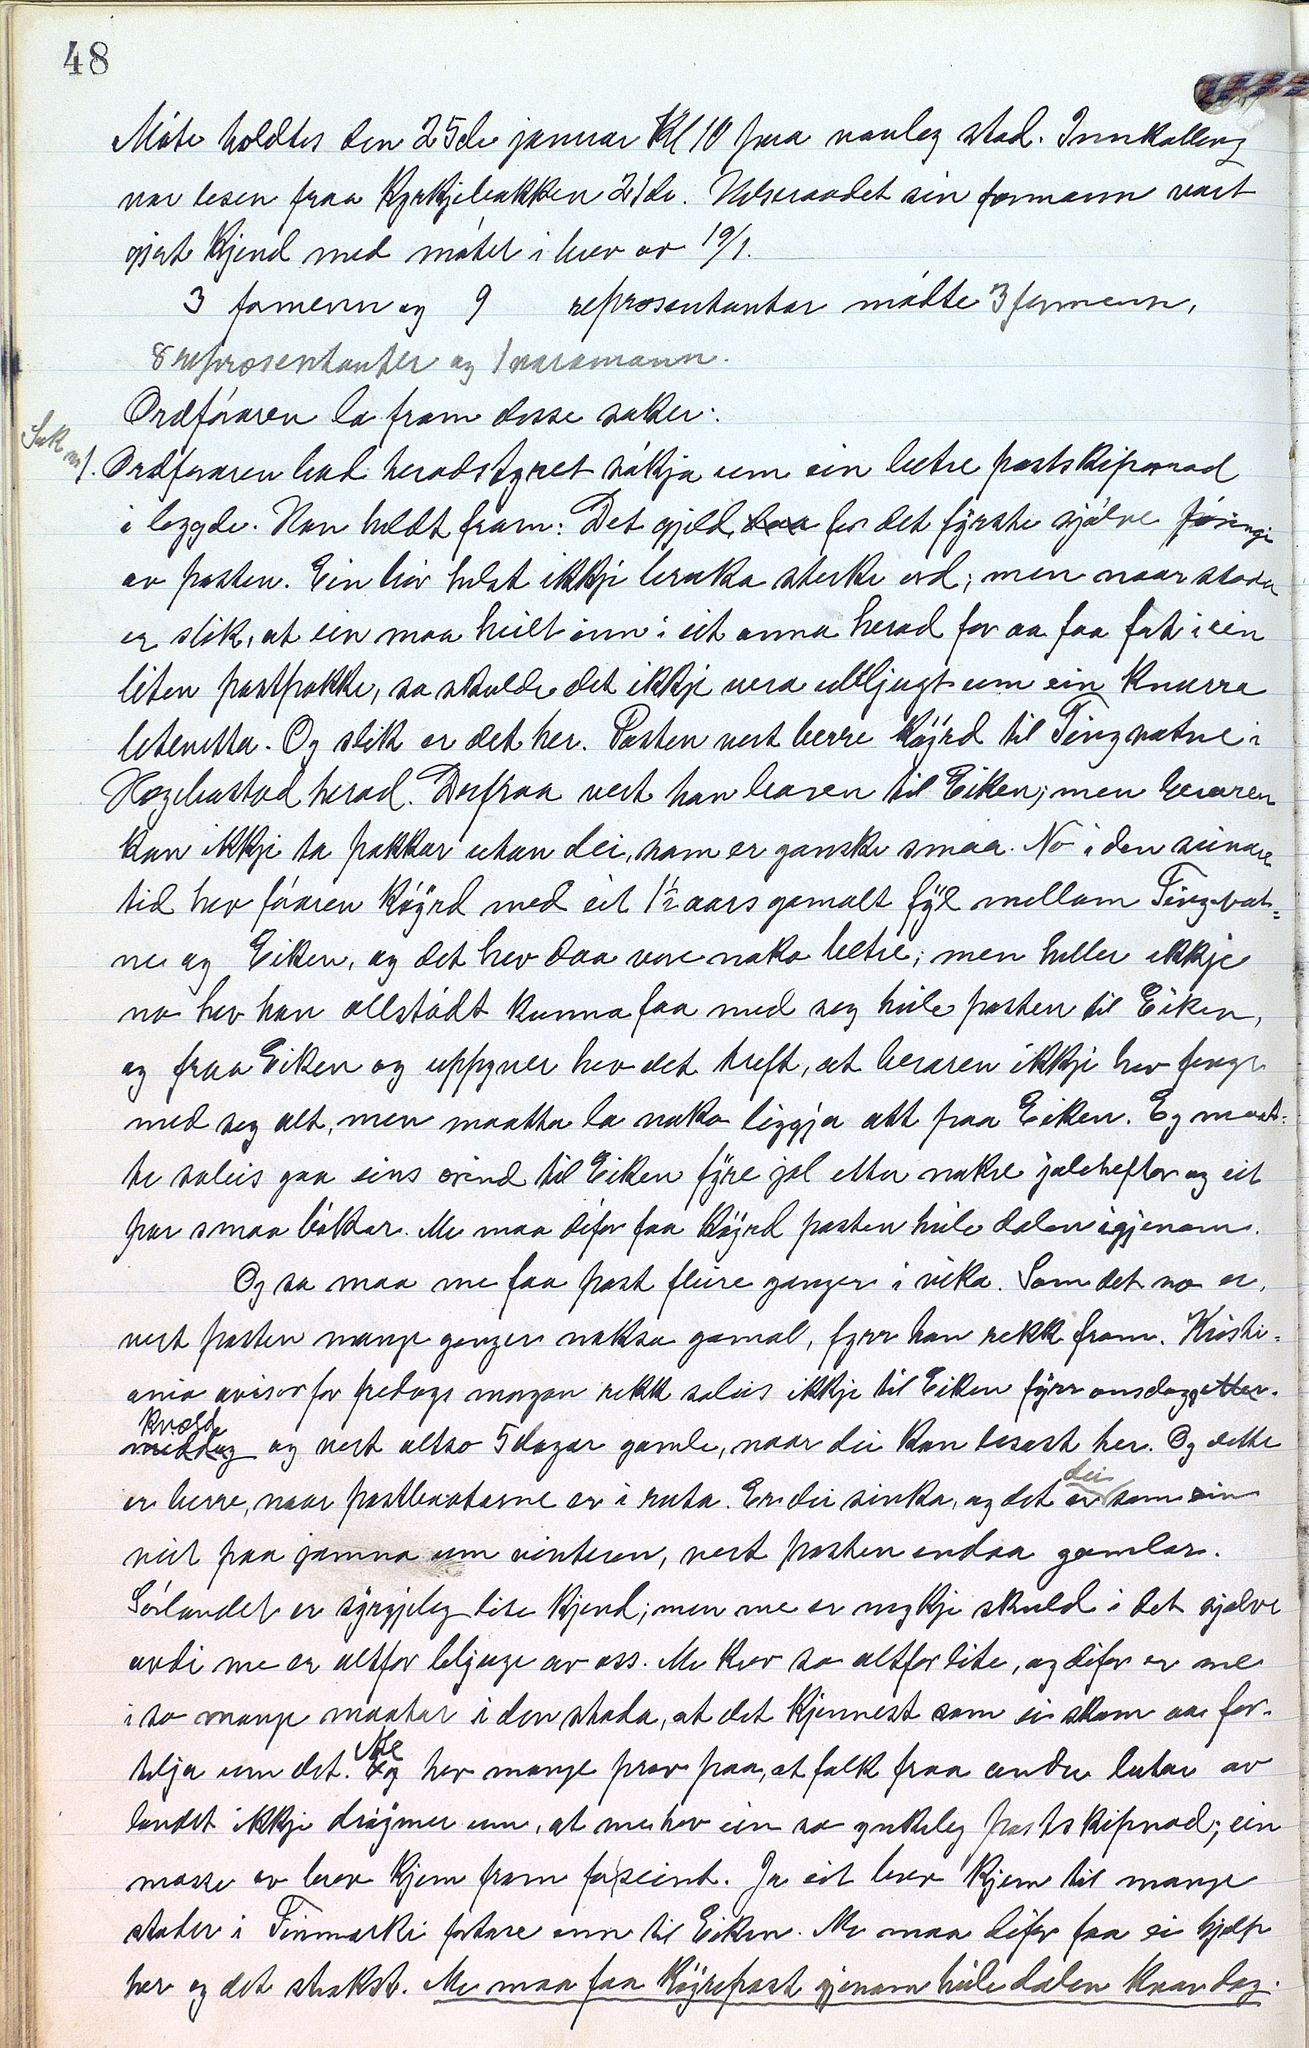 48
Møte holdtes den 25de januar Kl 10 paa vanleg stad. Innkalling
var lesen fraa Kyrkjebakken 21de. Helseraadet sin formann vart
gjort kjend med møtet i brev av 19/1.
3 formenn og 9 representantar møtte 3 formenn,
8 representanter og 1 varamann.
Ordføraren la fram desse saker:
Sak nr 1. Ordføraren bad heradstyret søkja um ein betre postskipnad
i bygde. Han heldt fram: Det gjeld daa for det fyrste sjølve føringi
av posten. Ein bør helst ikkje bruka sterke ord; men naar stoda
er slik, at ein maa heilt inn i eit anna herad for aa faa fat i ein
liten postpakke, so skulde det ikkje vera ubljugt um ein knurra
litevetta. Og slik er det her. Posten vert berre køyrd til Tingvatne i
Hægebostad herad. Derfraa vert han boren til Eiken; men beraren
kan ikkje ta pakkar utan dei, som er ganske smaa. No i den seinare
tid hev føraren køyrd med eit 1½ aars gamalt fyl mellom Tingvat=
ne og Eiken, og det hev daa vore noko betre; men heller ikkje
no hev han allstødt kunna faa med seg heile posten til Eiken,
og fraa Eiken og uppyver hev det treft, at beraren ikkje hev fenge
med seg alt, men maatta la noko liggja att paa Eiken. Eg maat=
te soleis gaa eins ærind til Eiken fyre jol etter nokre jolehefter og eit
par smaa bøkar. Me maa difor faa køyrd posten heile dalen igjenom.
Og so maa me faa post fleire ganger i vika. Som det no er,
vert posten mange ganger nokso gamal, fyrr han rekk fram. Kristi=
ania aviser for fredags morgon rekk soleis ikkje til Eiken fyrr onsdags etter-
kveld
middag og vert altso 5 dagar gamle, naar dei kan lesast her. Og dette
er berre, naar postbaatarne er i ruta. Er dei sinka, og det er dei som ein
veit paa jamna um vinteren, vert posten endaa gamlar.
Sørlandet er syrgjeleg lite kjend; men me er mykje skuld i det sjølve
avdi me er altfor bljuge av oss. Me krev so altfor lite, og difor er me
i so mange maatar i den stoda, at det kjennest som ei skam aa for-
telja um det. Eg Me hev mange prov paa, at folk fraa andre luter av
landet ikkje drøymer um, at me hev ein so ynkeleg postskipnad; ein
masse av brev kjem fram for seint. Ja eit brev kjem til mange
stader i Finmarki fortare enn til Eiken. Me maa difor faa ei hjelp
her og det strakst. Me maa faa køyrepost gjenom heile dalen kvar dag.